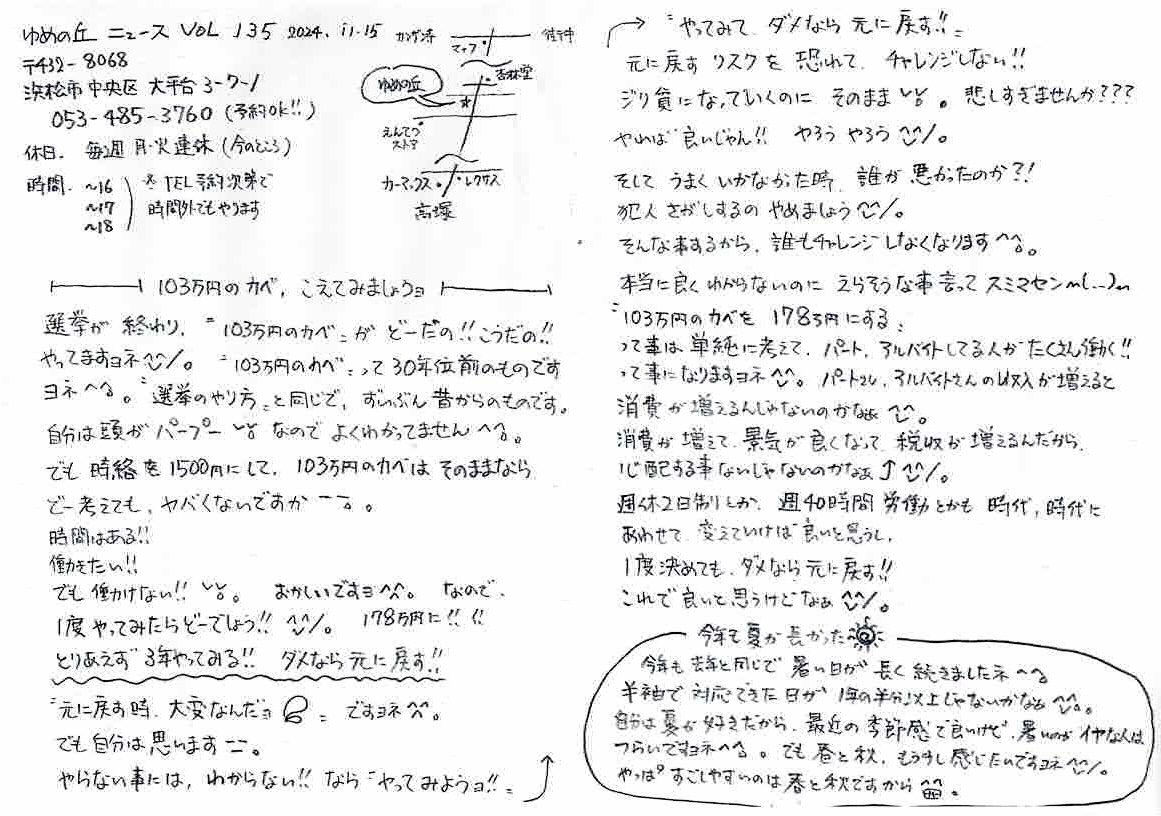 ゆめの丘 ニュース VOL 135 2024. 11.15
〒432-8068
浜松市中央区 大平台 3-7-1
053-485-3760 (予約OK!!)
休日. 毎週 月・火 連休 (今のところ)
時間. ~16
~17
~18
※ TEL予約次第で
時間外でもやります
マップ
杏林堂
ゆめの丘
えんてつ
ストア
カーマックス
レクサス
高塚
103万円のカベ, こえてみましょうョ
選挙が 終わり, “103万円のカベ„ が どーだの!! こうだの!!
やってますヨネ^^/。 “103万円のカベ„ って 30年位前のものです
ヨネ^^;。 “選挙のやり方„ と同じで, ずいぶん昔からのものです。
自分は頭が パープー なので よくわかってません ^^;。
でも 時給を 1500円にして, 103万円のカベは そのままなら
どー考えても, ヤバくないですか ーー;。
時間はある!!
働きたい!!
でも 働けない!! 。 おかしいですヨ ^^。 なので,
1度 やってみたらどーでしょう!! ^^/。 178万円に!! !!
とりあえず 3年やってみる!! ダメなら 元に戻す!!
“元に戻す時, 大変なんだョ „ ですヨネ ^^。
でも 自分は 思います ーー。
やらない事には, わからない!! なら “やってみようョ!!„
“やってみて, ダメなら 元に戻す!!„
元に戻す リスクを 恐れて, チャレンジしない!!
ジリ貧に なっていくのに そのまま 。 悲しすぎませんか???
やれば 良いじゃん!! やろう やろう ^^/。
そして うまく いかなかった時, 誰が 悪かったのか?!
犯人 さがしするの やめましょう ^^/。
そんな事するから, 誰もチャレンジしなくなります ^^;。
本当に良く わからないのに えらそうな事 言って スミマセン m(_ _)m
“103万円のカベを 178万円にする„
って事は 単純に考えて, パート, アルバイトしてる人が たくさん働く!!
って事に なりますヨネ ^^。 パートさん, アルバイトさんの収入が 増えると
消費が 増えるんじゃないのかなぁ ^^。
消費が 増えて, 景気が 良くなって, 税収が 増えるんだから,
心配する事ないじゃないのかなぁ ^^/。
週休2日制とか, 週40時間 労働とかも 時代, 時代に
あわせて, 変えていけば 良いと思うし,
1度 決めても, ダメなら 元に戻す!!
これで 良いと 思うけどなぁ ^^/。
今年も 夏が 長かった
今年も 去年と同じで 暑い日が 長く 続きましたネ ^^;
半袖で 対応できた 日が 1年の半分以上じゃないかなぁ ^^;。
自分は 夏が 好きだから, 最近の 季節感で良いけど, 暑いのが イヤな人は
つらいですヨネ ^^;。 でも 春と秋, もう少し 感じたいですヨネ ^^/。
やっぱ すごしやすいのは 春と秋ですから 。